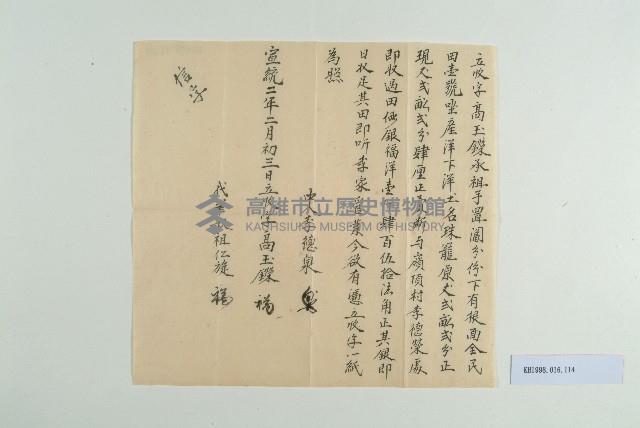 立收字高玉鏁承祖手置闔分份下有根面全民
田壹號坐產洋下洋土名珠籠原丈弍畝弍分正
現丈弍畝弍分肆厘正賣斷与嶺頂村李德榮處
即收過田価銀福洋壹 肆百伍拾法角正其銀即
日收足其田即听李家管業今欲有憑立收字一紙
為照
中人李德泉
宣統二年二月初三日立收字高玉鏁
代 祖仁旋
信字
高雄市立歷史博物館
KAOHSIUNG MUSEUM OF HISTORY
KH1998.016.114